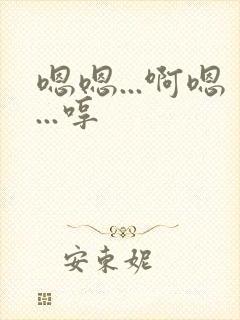 嗯嗯...啊嗯
...哼
安東妮